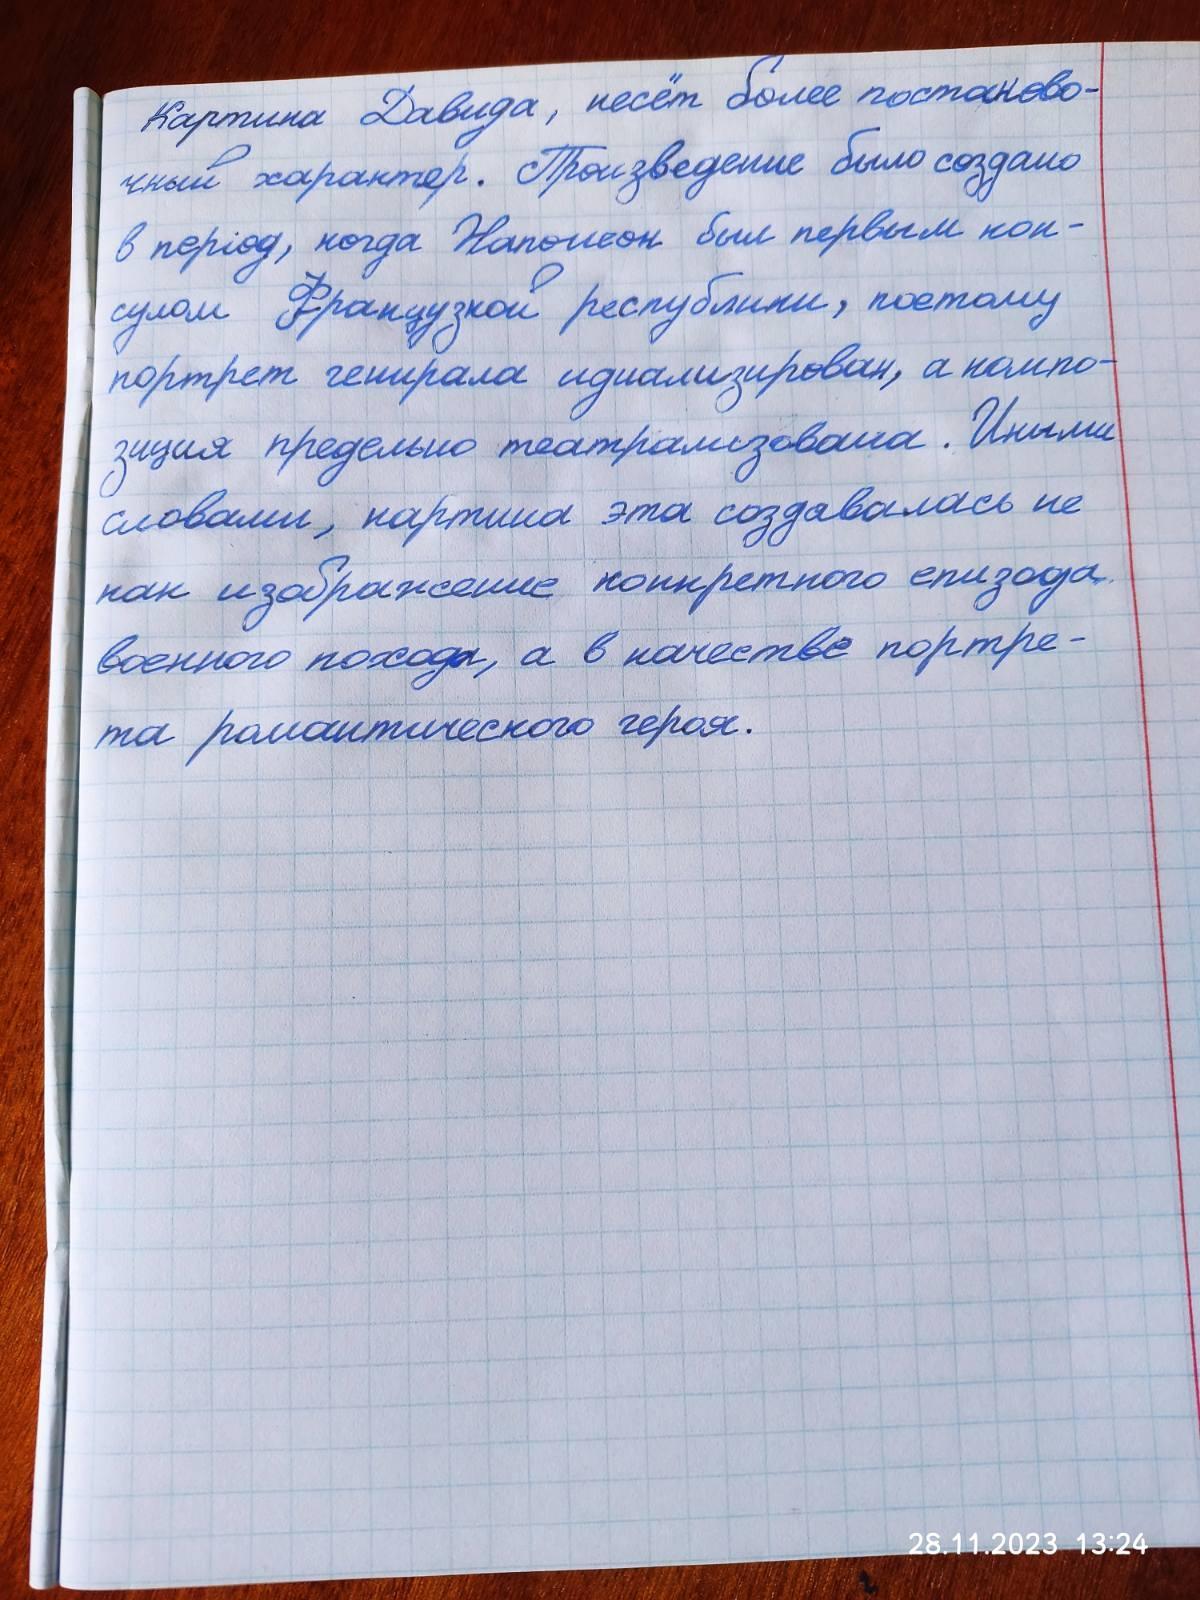 Картина Давида, несёт более постаново-
чный характер. Произведение было создано
в період, когда Наполеон был первым кон-
сулом Французкой республики, поетому
портрет генирала идиализирован, а компо-
зиция предельно театрализована. Иными
словами, картина эта создавалась не
как изображение конкретного епизода
военного похода, а в качестве портре-
та романтического героя.
28.11.2023 13:24